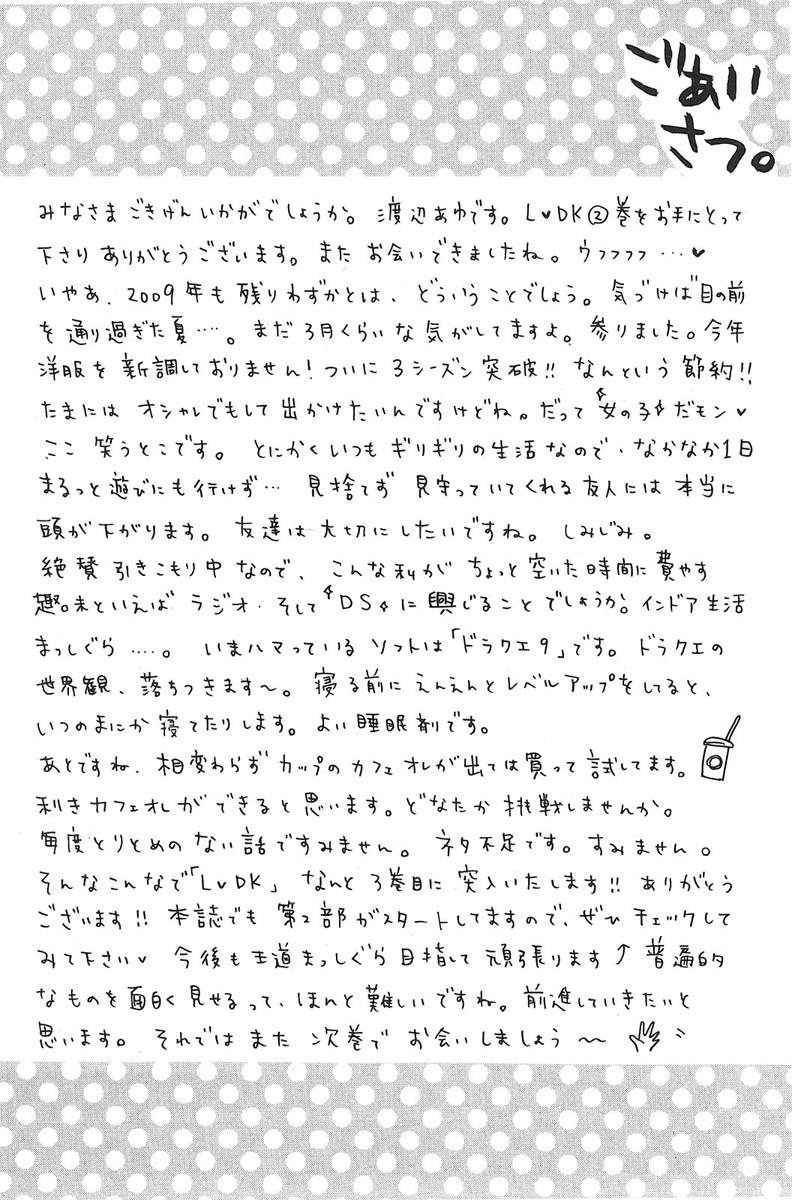 ごあい
さつ。
みなさま ごきげんいかがでしょうか。 渡辺あゆです。 L♥DK②巻をお手にとって
下さり ありがとうございます。 また お会いできましたね。 ウフフフフ…♥
いやあ、2009年も 残りわずかとは、 どういうことでしょう。 気づけば 目の前
を 通り過ぎた夏‥‥。 まだ 3月くらいな 気がしてますよ。 参りました。今年
洋服を 新調しておりません! ついに 3シーズン 突破!! なんという 節約!!
たまには オシャレでもして 出かけたいんですけどね。だって 女の子 だモン♥
ここ 笑うとこです。 とにかく いつも ギリギリの生活なので、なかなか1日
まるっと 遊びにも行けず… 見捨てず 見守っていてくれる 友人には 本当に
頭が下がります。 友達は 大切にしたいですね。 しみじみ。
絶賛 引きこもり中 なので、 こんな私が ちょっと 空いた 時間に 費やす
趣味といえば ラジオ・そして DS に 興じること でしょうか。インドア生活
まっしぐら‥‥。 いまハマっている ソフトは「ドラクエ9」です。 ドラクエの
世界観、落ちつきます〜。 寝る前に えんえんと レベルアップをしてると、
いつのまにか 寝てたりします。 よい 睡眠剤です。
あとですね、相変わらず カップの カフェオレが 出ては 買って 試してます。
利きカフェオレが できると 思います。どなたか 挑戦しませんか。
毎度とりとめの ない 話ですみません。 ネタ不足です。 すみません。
そんなこんなで「L♥DK」 なんと 3巻目に 突入いたします!! ありがとう
ございます!! 本誌でも 第2部がスタートしてますので、ぜひ チェックして
みて下さい♥ 今後も 王道まっしぐら 目指して 頑張ります↑ 普遍的
なものを 面白く 見せるって、ほんと 難しいですね。 前進していきたいと
思います。 それでは また 次巻で お会いしましょう〜